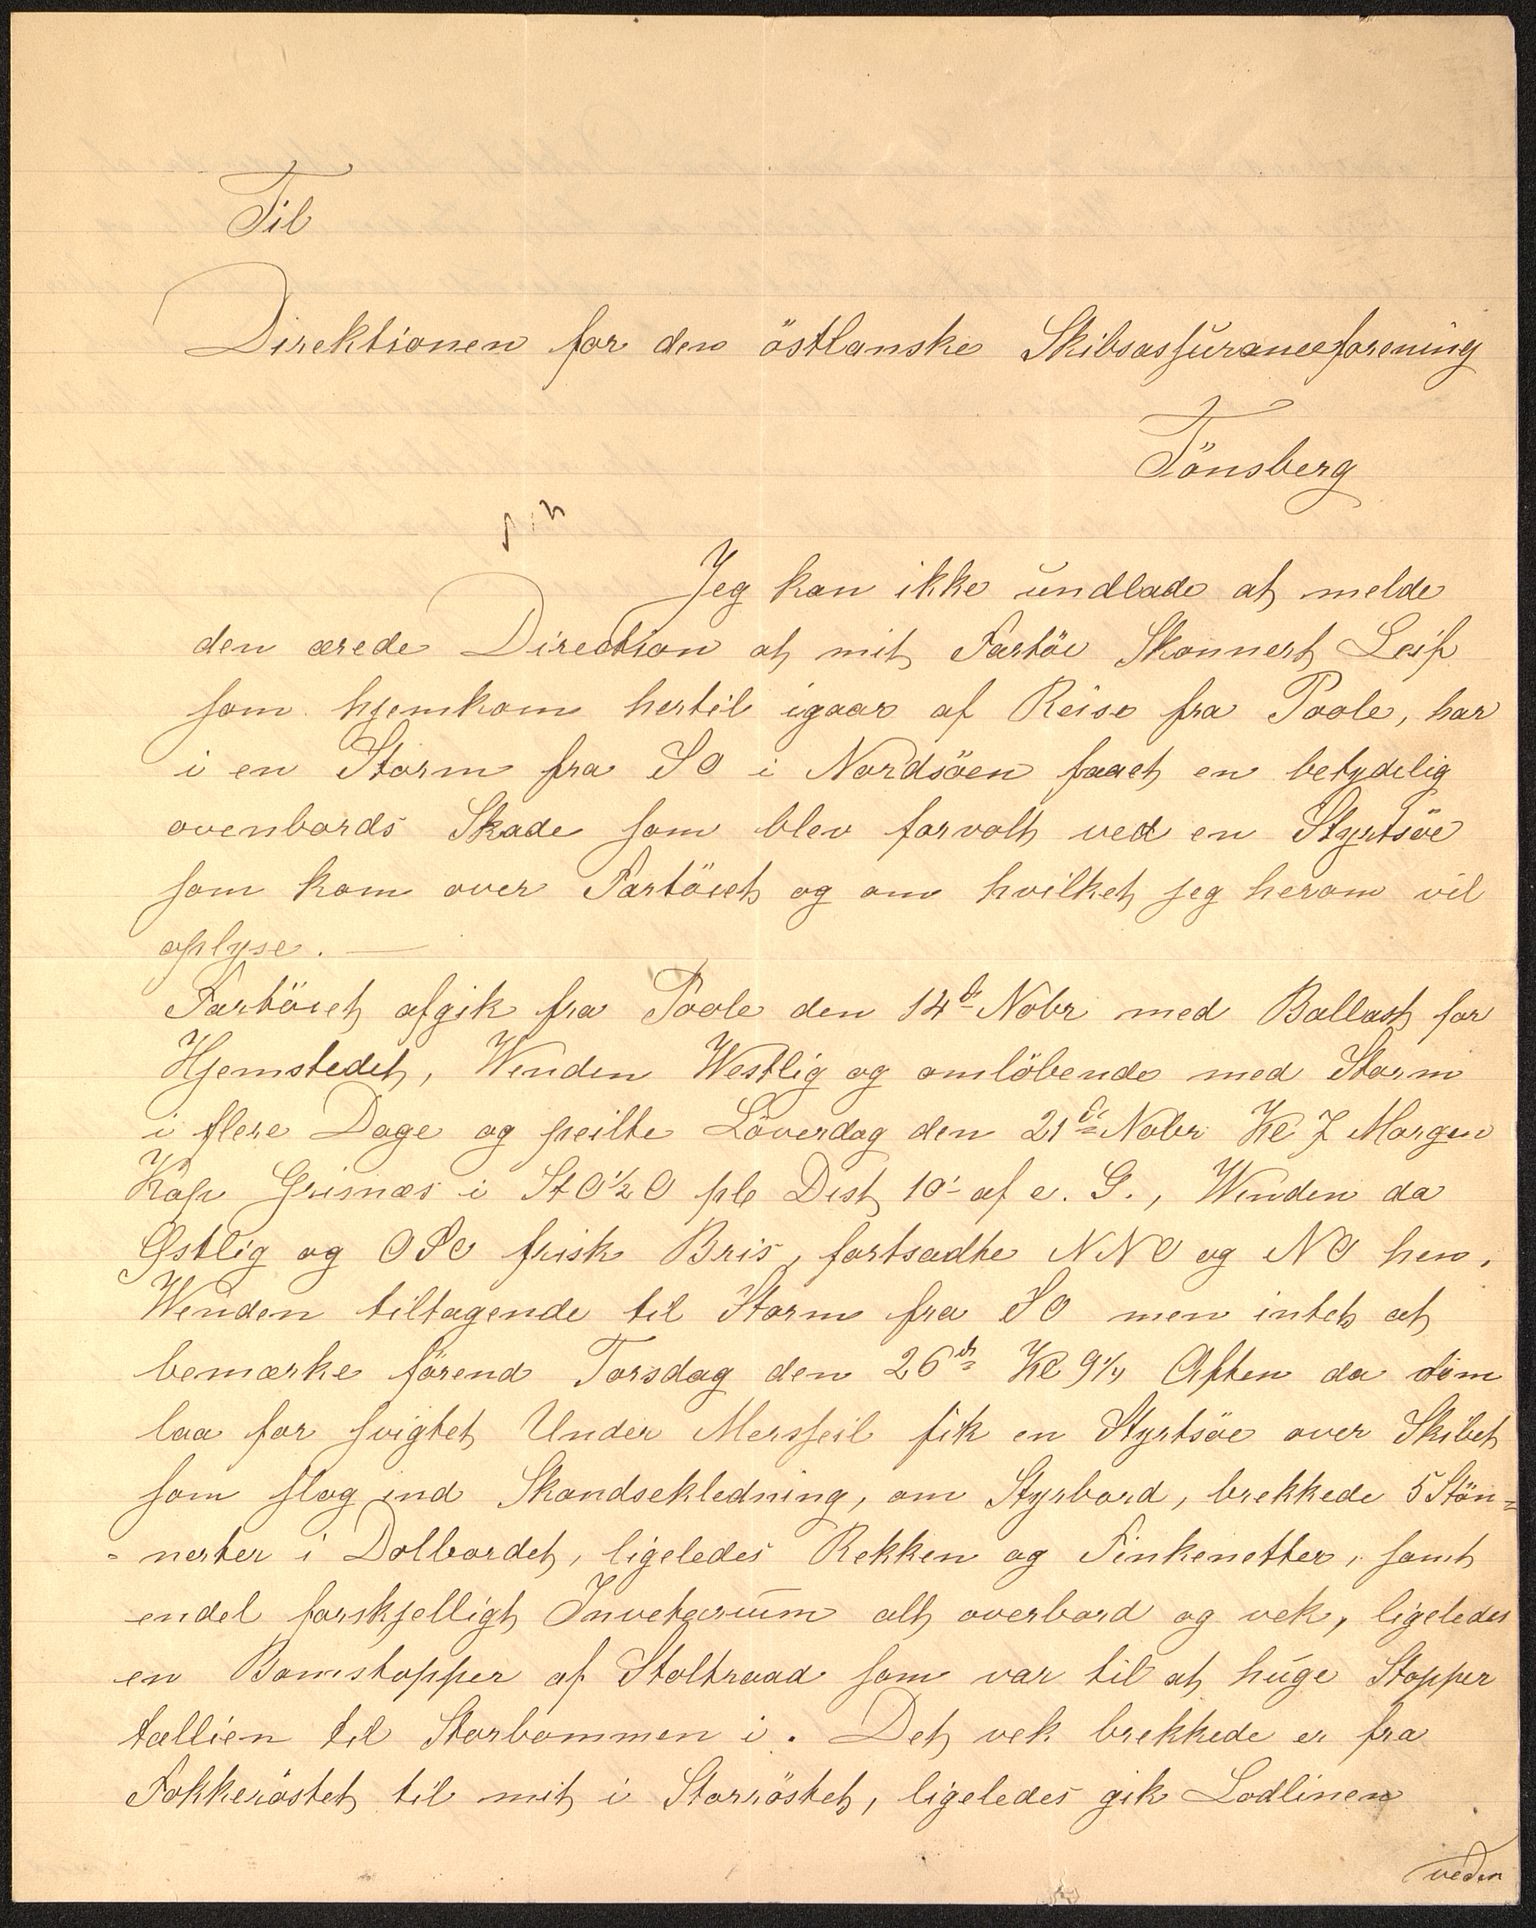 Til
Direktionen for den östlanske Skibsassuranceforening
Tönsberg
Jeg kan ikke undlade at melde
den ærede Direction at mit Fartöi Skonnert Leif
som hjemkom hertil igaar af Reise fra Poole, har
i en Storm fra SO i Nordsöen faaet en betydelig
ovenbords Skade som blev forvolt ved en Styrtsöe
som kom over Fartöiet og om hvilket jeg herom vil
oplyse. —
Fartöiet afgik fra Poole den 14de Nobr med Ballast for
Hjemstedet, Winden Westlig og omlöbende med Storm
i flere Dage og peilte Löverdag den 21de Nobr Kl 7 Morgen
Kap Grisnæs i StO½O pk Dist 10' af e. G., Winden da
Østlig og OSO frisk Bris, fortsadte NNO og NO hen,
Winden tiltagende til Storm fra SO men intet at
bemærke förend Torsdag den 26de Kl 9¼ Aften da som
laa for svigtet Under Mersseil fik en Styrtsöe over Skibet
som slog ind Skandsekledning, om Styrbord, brekkede 5 Stön=
=nerter i Dolbordet, ligeledes Rekken og Finkenetter, samt
endel forskjelligt Invetarium alt overbord og vek, ligeledes
en Bomstopper af Stoltraad som var til at huge Stopper
tællien til Storbommen i. Det vek brekkede er fra
Fokkeröstet til mit i Storröstet, ligeledes gik Lodlinen
veden